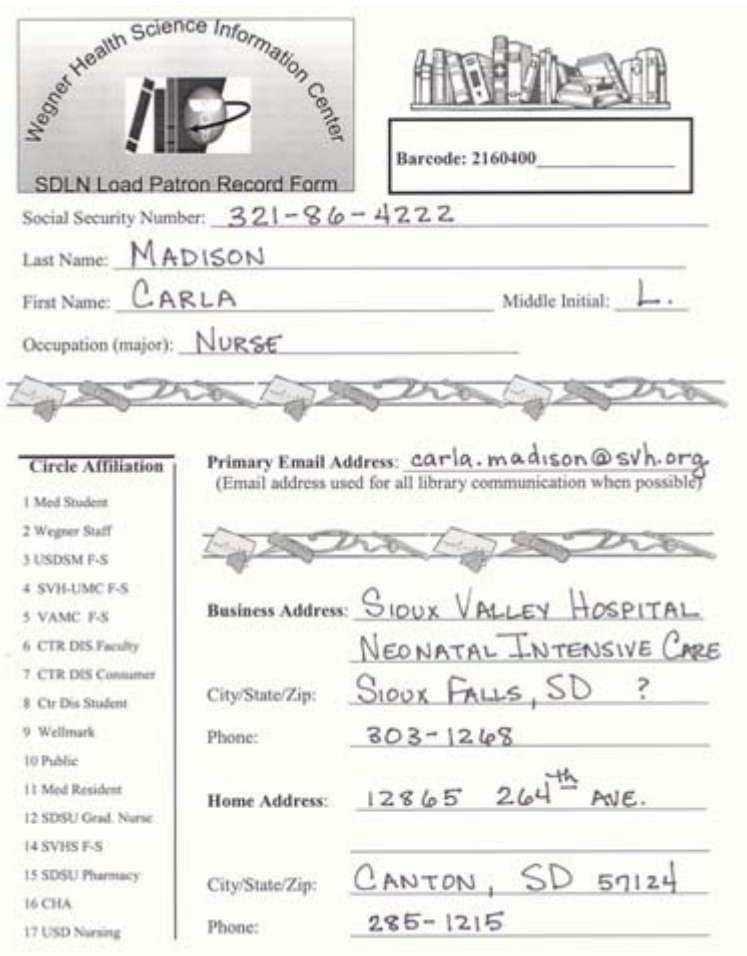 Wegner Health Science Information Center
SDLN Load Patron Record Form
Barcode: 2160400
Social Security Number: 321-86-4222
Last Name: MADISON
First Name: CARLA Middle Initial: L.
Occupation (major): NURSE
Circle Affiliation
1 Med Student
2 Wegner Staff
3 USDSM F-S
4 SVH-UMC F-S
5 VAMC F-S
6 CTR DIS Faculty
7 CTR DIS Consumer
8 Ctr Dis Student
9 Wellmark
10 Public
11 Med Resident
12 SDSU Grad. Nurse
14 SVHS F-S
15 SDSU Pharmacy
16 CHA
17 USD Nursing
Primary Email Address: carla.madison@svh.org
(Email address used for all library communication when possible)
Business Address: SIOUX VALLEY HOSPITAL
NEONATAL INTENSIVE CARE
City/State/Zip: SIOUX FALLS, SD ?
Phone: 303-1268
Home Address: 12865 264th AVE.
City/State/Zip: CANTON, SD 57124
Phone: 285-1215